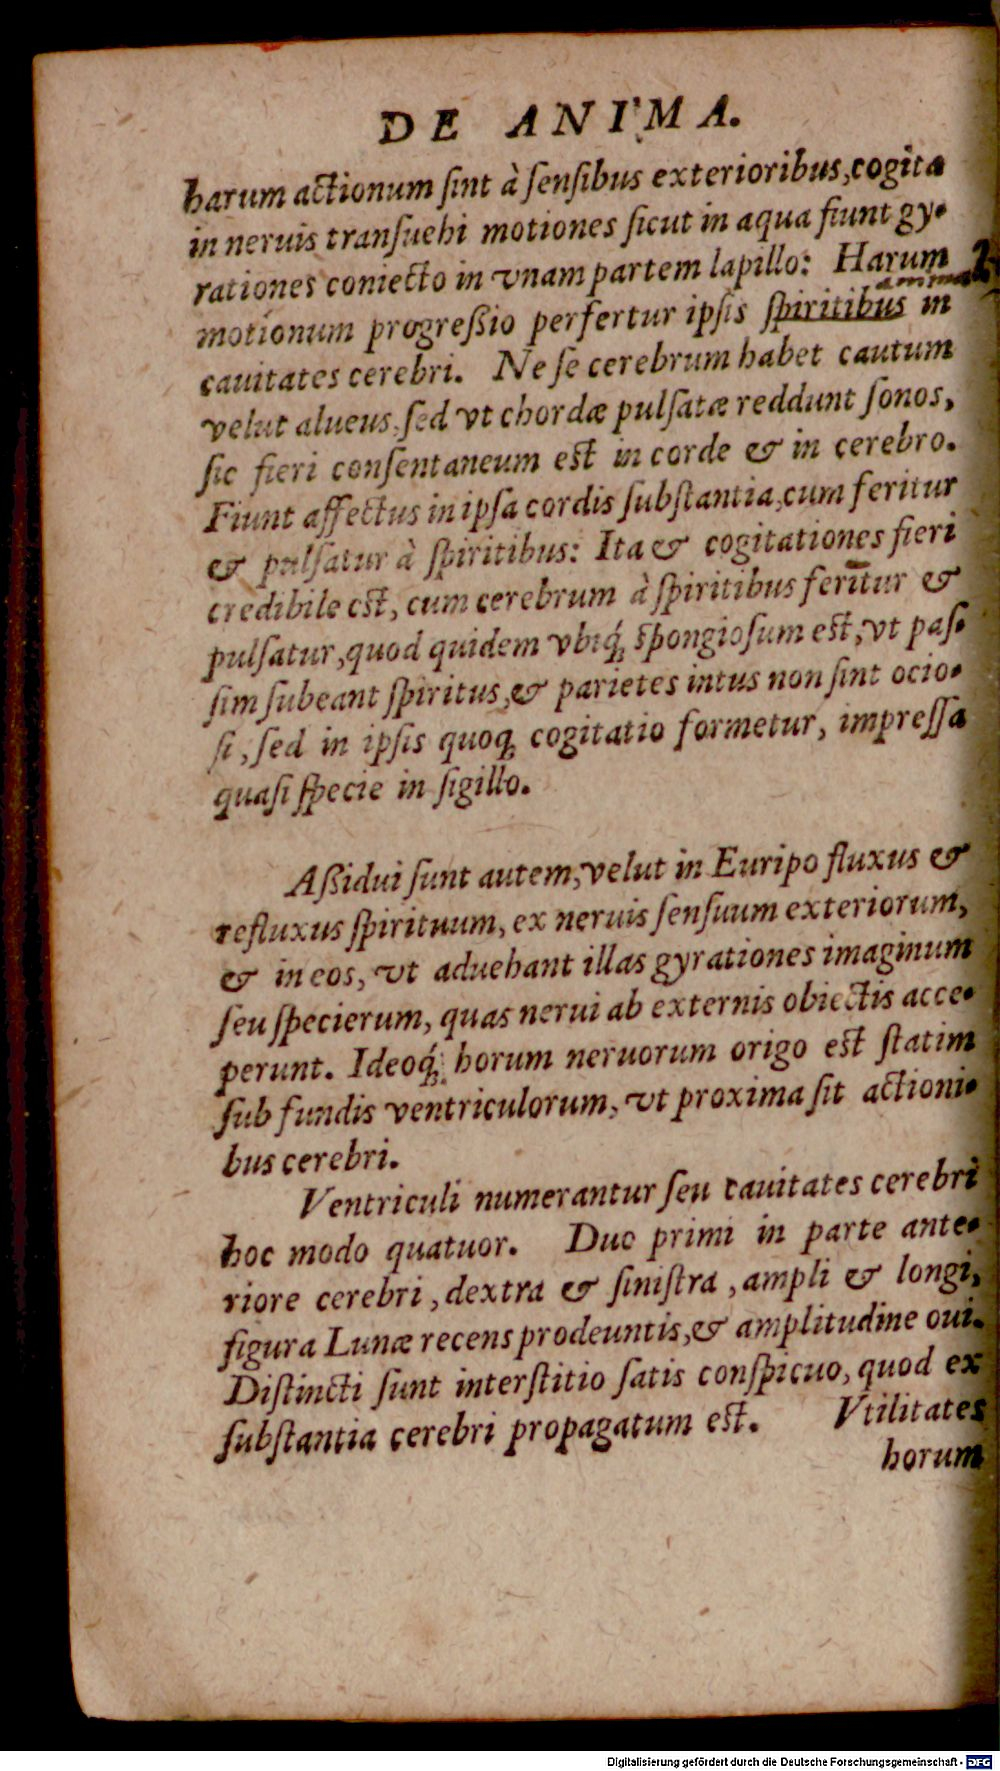 DE ANIMA.
harum actionum ſint à ſenſibus exterioribus, cogita
in neruis tranſuehi motiones ſicut in aqua fiunt gy-
rationes coniecto in vnam partem lapillo: Harum
motionum progreßio perfertur ipſis ſpiritibus in
cauitates cerebri. Ne ſe cerebrum habet cautum
velut alueus, ſed vt chordæ pulſatæ reddunt ſonos,
ſic fieri conſentaneum est in corde & in cerebro.
Fiunt affectus in ipſa cordis ſubſtantia, cum feritur
& pulſatur à ſpiritibus: Ita & cogitationes fieri
credibile est, cum cerebrum à ſpiritibus feritur &
pulſatur, quod quidem vbiq́; spongioſum est, vt paſ-
ſim ſubeant ſpiritus, & parietes intus non ſint ocio-
ſi, ſed in ipſis quoq; cogitatio formetur, impreſſa
quaſi ſpecie in ſigillo.
Aßidui ſunt autem, velut in Euripo fluxus &
refluxus ſpirituum, ex neruis ſenſuum exteriorum,
& in eos, vt aduehant illas gyrationes imaginum
ſeu ſpecierum, quas nerui ab externis obiectis acce-
perunt. Ideoq́; horum neruorum origo est ſtatim
ſub fundis ventriculorum, vt proxima ſit actioni-
bus cerebri.
Ventriculi numerantur ſeu cauitates cerebri
hoc modo quatuor. Duo primi in parte ante-
riore cerebri, dextra & ſiniſtra, ampli & longi,
figura Lunæ recens prodeuntis, & amplitudine oui.
Diſtincti ſunt interſtitio ſatis conſpicuo, quod ex
ſubſtantia cerebri propagatum est. Vtilitates
horum
Digitalisierung gefördert durch die Deutsche Forschungsgemeinschaft - DFG